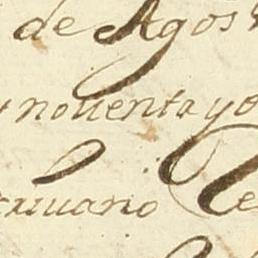 de Agos
noventa y o
criuano